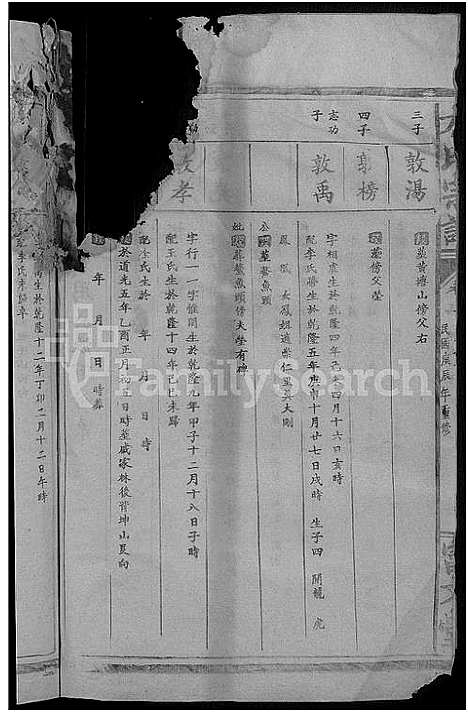 氏宗譜
民國庚辰年重修
三子
敦湯
葬黃塘山傍父右
四子
敦榜
葬傍父塋
志功
子
敦禹
字相虞生於乾隆四年己未四月十六日亥時
配李氏蔣生於乾隆五年庚申十月廿七日戌時 生子四 開龍 虎
鳳 太鳳超適崇仁里吳大剛
葬鰲魚頭
妣葬鰲魚頭傍夫塋有碑
敦孝
字行一 生於乾隆九年甲子十二月十八日子時
配王氏生於乾隆十四年己巳未歸
配李氏生於 年 月 日 時
於道光五年乙酉正月初五日時葬戚家林後背坤山艮向
年 月 日 時葬
生於乾隆十二年丁卯二月十二日午時
李氏未歸卒
FamilySearch